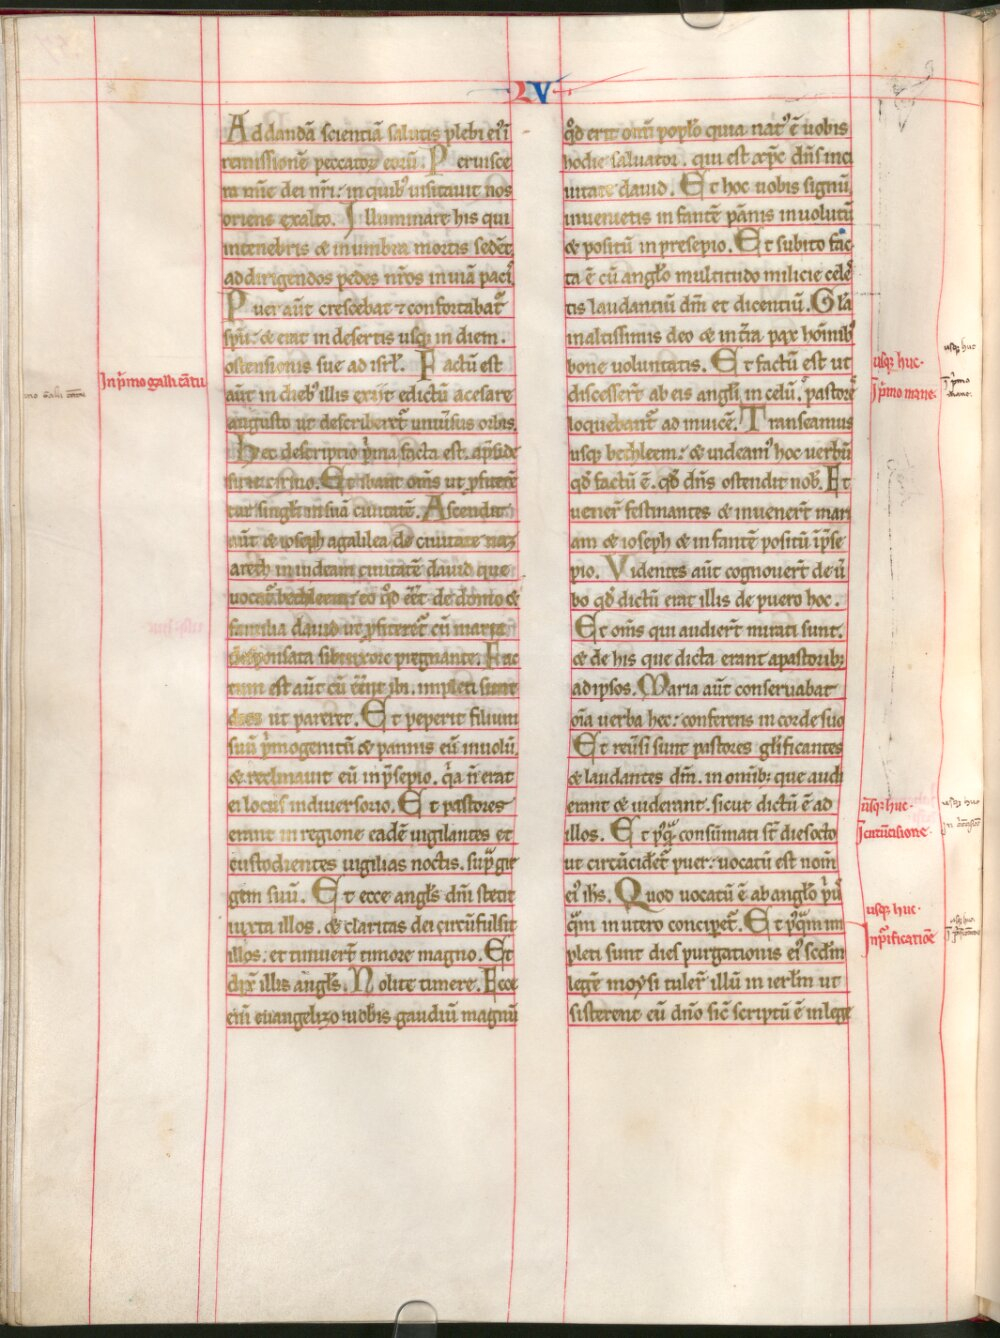 LV
Ad dandā scientiā salutis plebi ei⁹ ī
remissionē peccatoꝝ eoꝝ. Per uisce
ra mīe dei nr̄i: in quib⁹ uisitauit nos
oriens exalto. Illuminare his qui
intenebris & inumbra mortis sedēt
addirigendos pedes nr̄os inuiā paci⁹.
Puer aūt crescebat ⁊ confortabat᷑
sp̄u: & erat in desertis usq; in diem
ostensionis sue ad isrl̄. Factū est
aūt in dieb⁹ illis exiit edictū acesare
augusto ut describeret᷑ uniuersus orbis.
Hec descriptio p̄ma facta est. apside
sirie cirino. Et ibant om̄s ut ꝓfiteren
tur singl̄i insuā ciuitatē. Ascendit
aūt & ioseph agalilea de ciuitate naz
areth in iudeam ciuitatē dauid que
uocat᷑ bethleem: eo qd̄ eēt de domo &
familia dauid ut ꝓfiteret᷑ cū maria
desponsata sibi uxore pregnante. Fac
tum est aūt cū eēnt ibi. impleti sunt
dies ut pareret. Et peperit filium
suū p̄mogenitū & pannis eū inuolū.
& reclinauit eū in p̄sepio. q̄a n̄ erat
ei locus indiuersorio. Et pastores
erant in regione eadē uigilantes et
custodientes uigilias noctis. supͣ gre
gem suū. Et ecce angl̄s dn̄i stetit
iuxta illos. & claritas dei circūfulsit
illos: et timuer̄t timore magno. Et
dix̄ illis angl̄s. Nolite timere. Ecce
eni̅ euangelizo uobis gaudiū magnū
qd̄ erit om̄i poplo quia nat⁹ ē uobis
hodie saluator. qui est xp̄c dn̄s inci
uitate dauid. Et hoc uobis signū
inuenietis infantē pānis inuolutū
& positū in presepio. Et subito fac
ta ē cū anglo multitudo milicie celes
tis laudantiū dm̄ et dicentiū. Glā
inaltissimis deo & in tr̄a pax homīb⁹
bone uoluntatis. Et factū est ut
discesser̄t ab eis angl̄i in celū. pastores
loquebant᷑ ad inuicē. Transeamus
usq; bethleem: & uideam⁹ hoc uerbū
qd̄ factū ē. qd̄ dn̄s ostendit nob̄. Et
uener̄t festinantes & inuener̄t mari
am & ioseph & infantē positū ip̄se
pio. Videntes aūt cognouer̄t de ū
bo qd̄ dictū erat illis de puero hoc.
Et om̄s qui audier̄t mirati sunt.
& de his que dicta erant apastorib;
adipsos. Maria aūt conseruabat
oīa uerba hec: conferens in corde suo
Et reūsi sunt pastores gl̄ificantes
& laudantes dm̄. in omīb; que audi
erant & uiderant. sicut dictū ē ad
illos. Et pꝰqͣ consūmati st̄ dies octo
ut circūcideret᷑ puer: uocatū est nom̄
ei⁹ ihs̄. Quod uocatū ē ab anglo p̄us
qͣm in utero conciperet᷑. Et pꝰqͣm im
pleti sunt dies purgationis ei⁹ scdm̄
legē moysi tuler̄t illū in ierl̄m ut
sisterent eū dn̄o sic̄ scriptū ē inlege
In p̄mo galli cātu
usq; huc.
Ī p̄mo mane.
usq; huc
Ī p̄mo
mane.
usq; huc.
Ī circūcisione.
usq; huc
usq; huc.
In pͥficatiōe
usq; huc